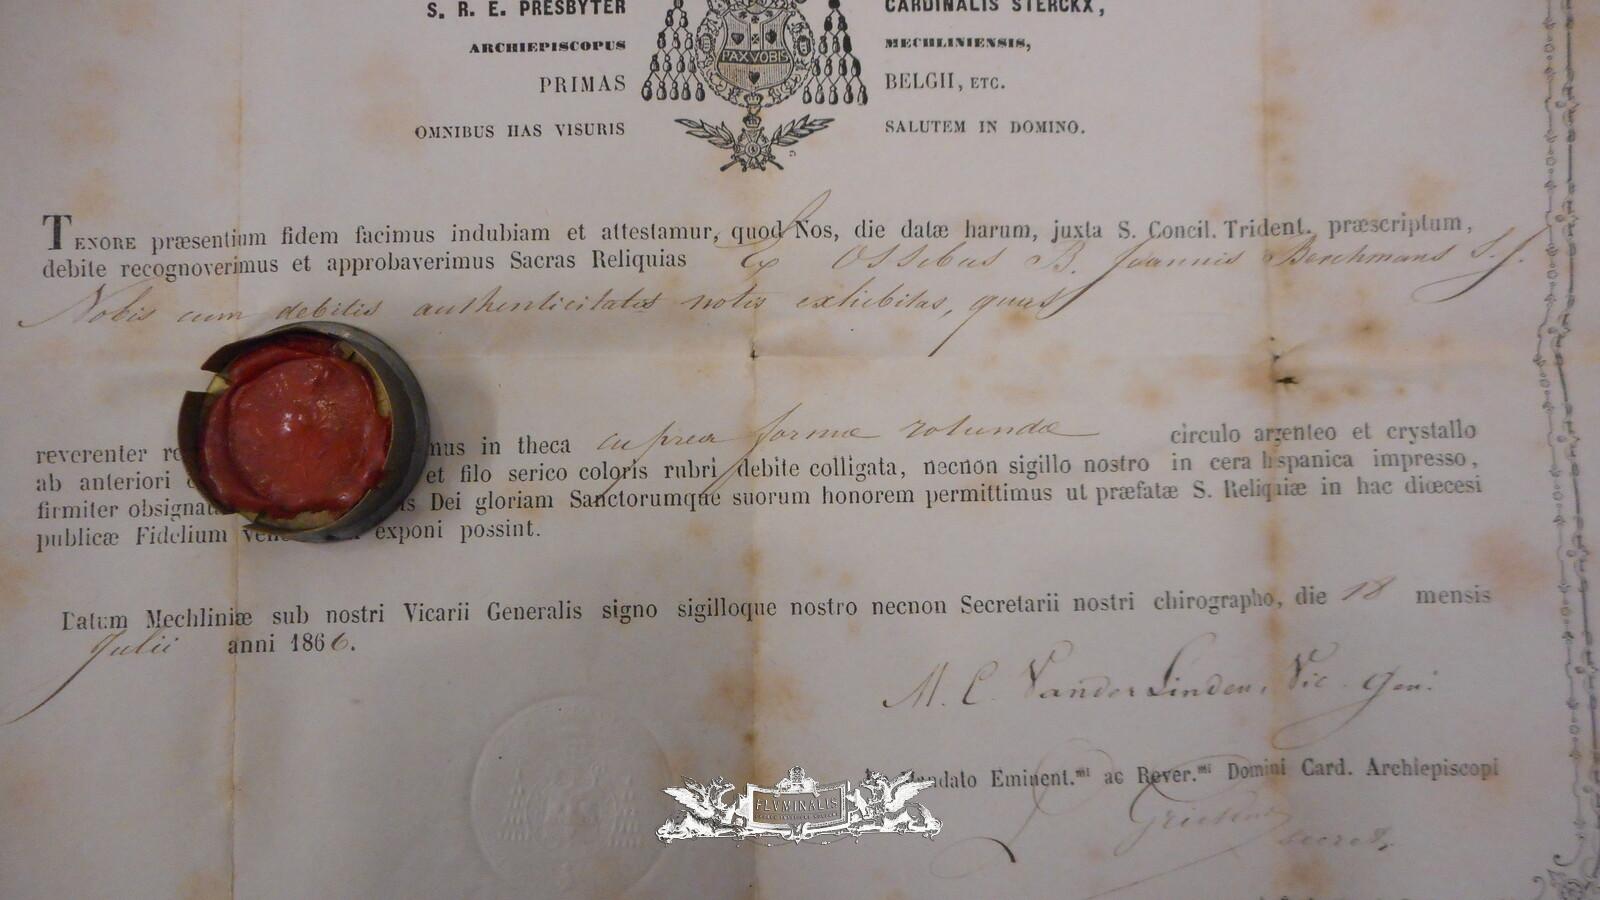 S. R. E. PRESBYTER CARDINALIS STERCKX,
ARCHIEPISCOPUS MECHLINIENSIS,
PAX VOBIS
PRIMAS BELGII, ETC.
OMNIBUS HAS VISURIS SALUTEM IN DOMINO.
TENORE præsentium fidem facimus indubiam et attestamur, quod Nos, die datæ harum, juxta S. Concil. Trident. præscriptum,
debite recognoverimus et approbaverimus Sacras Reliquias Ex Ossibus B. Joannis Berchmans S. J.
Nobis cum debitis authenticitatis notis exhibitas, quas
reverenter re mus in theca cuprea formæ rotundæ circulo argenteo et crystallo
ab anteriori et filo serico coloris rubri debite colligata, necnon sigillo nostro in cera hispanica impresso,
firmiter obsignat is Dei gloriam Sanctorumque suorum honorem permittimus ut præfatæ S. Reliquiæ in hac diœcesi
publicæ Fidelium vene exponi possint.
Datum Mechliniæ sub nostri Vicarii Generalis signo sigilloque nostro necnon Secretarii nostri chirographo, die 18 mensis
Julii anni 1866.
M. C. Vander Linden, Vic. Gen.
andato Eminent.mi ac Rever.mi Domini Card. Archiepiscopi
secret.
FLVMINALIS